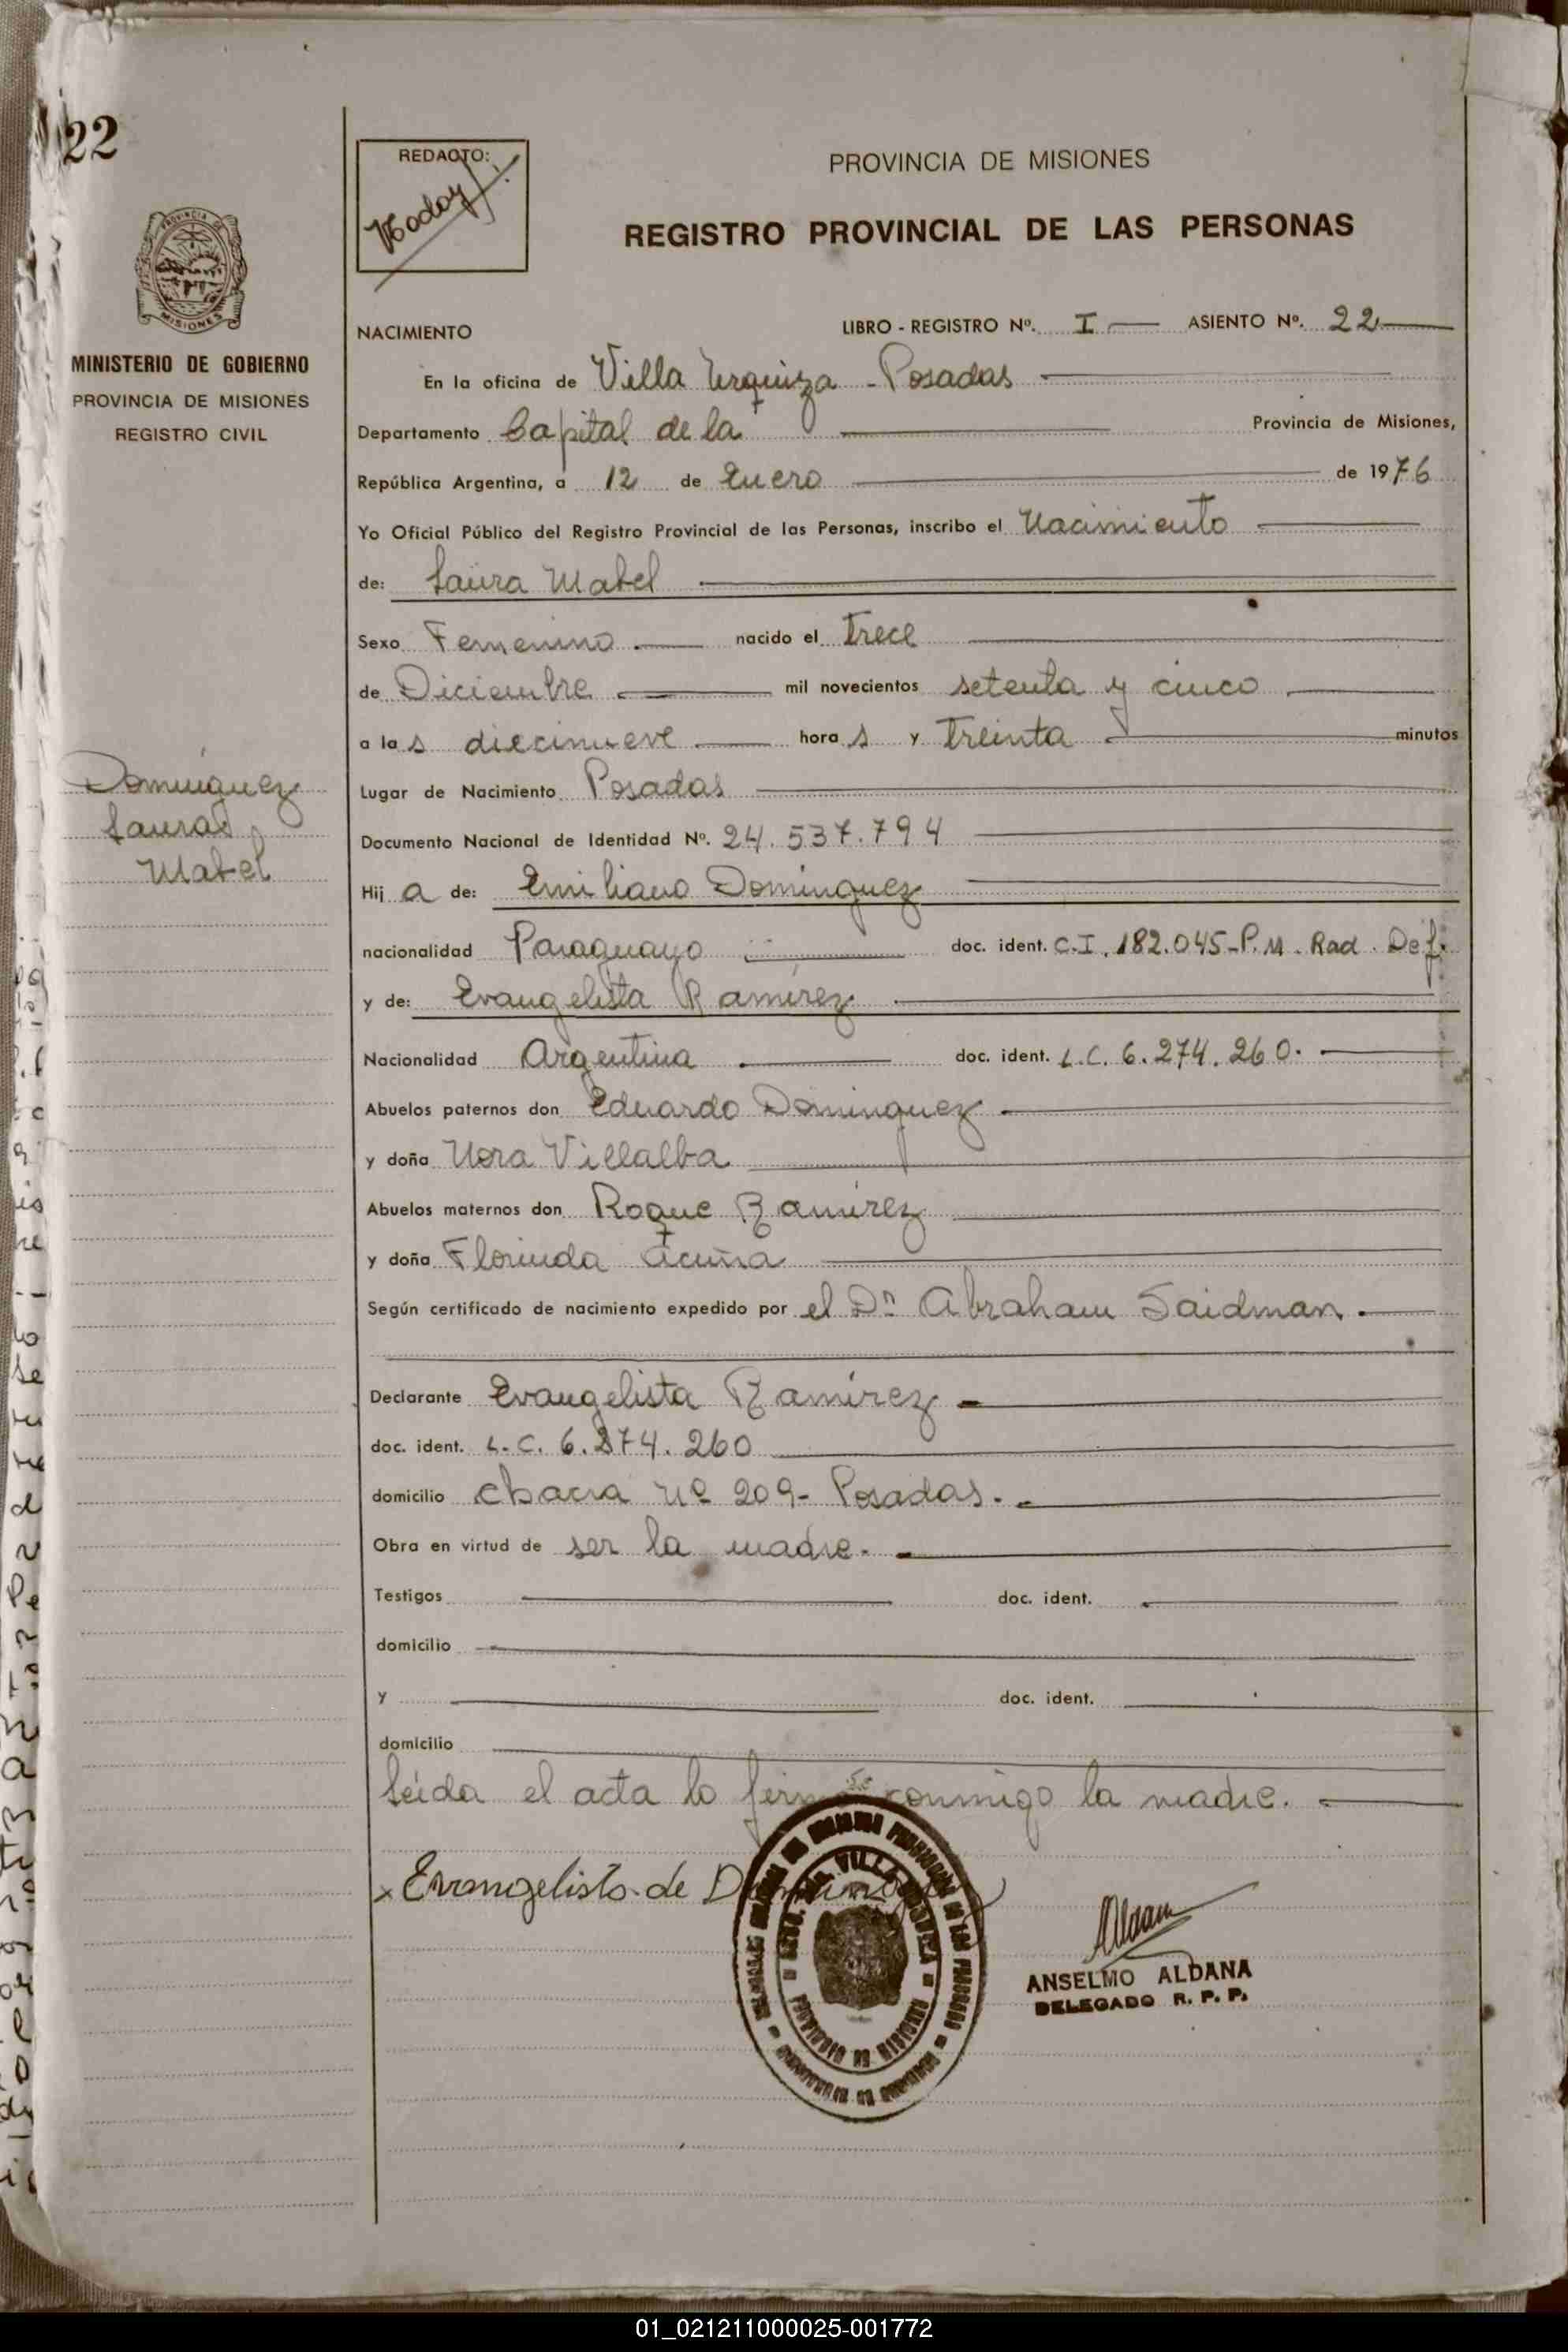 22
REDACTO:
PROVINCIA DE MISIONES
REGISTRO PROVINCIAL DE LAS PERSONAS
PROVINCIA DE
MISIONES
MINISTERIO DE GOBIERNO
PROVINCIA DE MISIONES
REGISTRO CIVIL
NACIMIENTO LIBRO - REGISTRO Nº. I ASIENTO Nº. 22
En la oficina de Villa Urquiza - Posadas
Departamento Capital de la Provincia de Misiones,
República Argentina, a 12 de Enero de 1976
Yo Oficial Público del Registro Provincial de las Personas, inscribo el Nacimiento
de: Laura Mabel
Sexo Femenino nacido el Trece
de Diciembre mil novecientos setenta y cinco
a la s diecinueve hora s y Treinta minutos
Lugar de Nacimiento Posadas
Documento Nacional de Identidad Nº. 24.537.794
Domínguez
Laura
Mabel
Hij a de: Emiliano Domínguez
nacionalidad Paraguayo doc. ident. C.I. 182.045-P.M. Rad. Def.
y de: Evangelista Ramírez
Nacionalidad Argentina doc. ident. L.C. 6.274.260.
Abuelos paternos don Eduardo Domínguez
y doña Nora Villalba
Abuelos maternos don Roque Ramírez
y doña Florinda Acuña
Según certificado de nacimiento expedido por el Dr. Abraham Saidman.
Declarante Evangelista Ramírez
doc. ident. L.C. 6.274.260
domicilio chacra Nº 209- Posadas.
Obra en virtud de ser la madre.
Testigos doc. ident.
domicilio
y doc. ident.
domicilio
Leída el acta lo firma conmigo la madre.
x Evangelista de Dominguez
ANSELMO ALDANA
DELEGADO R. P. P.
01_021211000025-001772